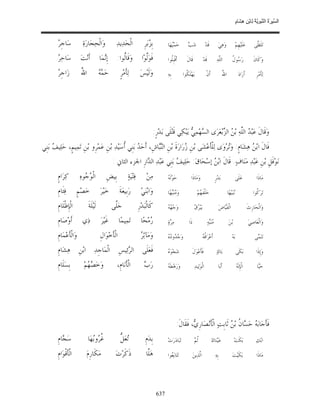 السِّيرَةُ النَّبَوِيَّةُ لِابْنِ هِشَامٍ
تَلَظَّى عَلَيْهِمْ وَهِيَ قَدْ شَبَّ حَمْيُهَا بِزُبَرِ الْحَدِيدِ وَالْحِجَارَةِ سَاجِرُ
وَكَانَ رَسُولُ اللَّهِ قَدْ قَالَ أَقْبِلُوا فَوَلَّوْا وَقَالُوا إِنَّمَا أَنْتَ سَاحِرُ
لِأَمْرٍ أَرَادَ اللَّهُ أَنْ يَهْلِكُوا بِهِ وَلَيْسَ لِأَمْرٍ حَمَّهُ اللَّهُ زَاجِرُ
وَقَالَ عَبْدُ اللَّهِ بْنُ الزِّبَعْرَى السَّهْمِيُّ يَبْكِي قَتْلَى بَدْرٍ
قَالَ ابْنُ هِشَامٍ: وَتُرْوَى لِلْأَعْشَى بْنِ زُرَارَةَ بْنِ النَّبَّاشِ، أَحَدُ بَنِي أُسَيْدِ بْنِ عَمْرِو بْنِ تَمِيمٍ، حَلِيفُ بَنِي
نَوْفَلِ بْنِ عَبْدِ مَنَافٍ. قَالَ ابْنُ إِسْحَاقَ: حَلِيفُ بَنِي عَبْدِ الدَّارِ الجزء الثاني
مَاذَا عَلَى بَدْرٍ وَمَاذَا حَوْلَهُ مِنْ فِتْيَةٍ بِيضِ الْوُجُوهِ كِرَامِ
تَرَكُوا نُبَيْهًا خَلْفَهُمْ وَمُنَبِّهًا وَابْنَيْ رَبِيعَةَ خَيْرَ خَصْمِ فِئَامِ
وَالْحَارِثَ الْفَيَّاضَ يَبْرُقُ وَجْهُهُ كَالْبَدْرِ جَلَّى لَيْلَةَ الْإِظْلَامِ
وَالْعَاصِيَ بْنَ مُنَبِّهٍ ذَا مِرَّةٍ رُمْحًا تَمِيمًا غَيْرَ ذِي أَوْصَامِ
تَنْمَى بِهِ أَعْرَاقُهُ وَجُدُودُهُ وَمَآثِرُ الْأَخْوَالِ وَالْأَعْمَامِ
وَإِذَا بَكَى بَاكٍ فَأَعْوَلَ شَجْوَهُ فَعَلَى الرَّئِيسِ الْمَاجِدِ ابْنِ هِشَامِ
حَيَّا الْإِلَهُ أَبَا الْوَلِيدِ وَرَهْطَهُ رَبُّ الْأَنَامِ، وَخَصَّهُمْ بِسَلَامِ
فَأَجَابَهُ حَسَّانُ بْنُ ثَابِتٍ الْأَنْصَارِيُّ، فَقَالَ
ابْكِ بَكَتْ عَيْنَاكَ ثُمَّ تَبَادَرَتْ بِدَمٍ تُعَلُّ غُرُوبُهَا سَجَّامِ
مَاذَا بَكَيْتَ بِهِ الَّذِينَ تَتَايَعُوا هَلَّا ذَكَرْتَ مَكَارِمَ الْأَقْوَامِ
637